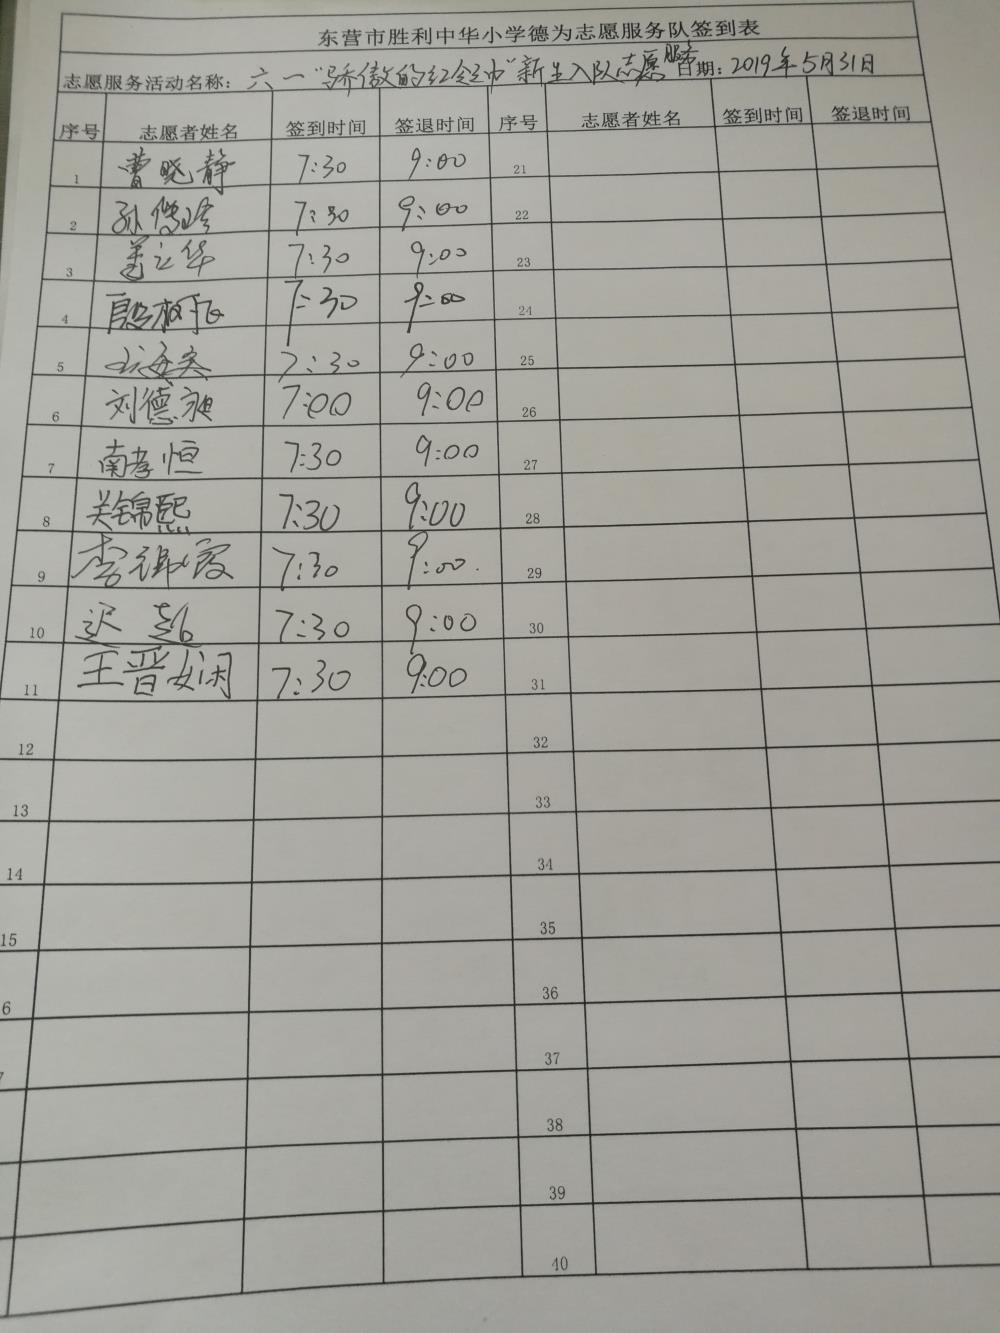 东营市胜利中华小学德为志愿服务队签到表
志愿服务活动名称：六一"骄傲的红领巾"新生入队志愿服务 日期：2019年5月31日
序号 志愿者姓名 签到时间 签退时间 序号 志愿者姓名 签到时间 签退时间
1 曹晓静 7:30 9:00 21
2 孙 7:30 9:00 22
3 姜立华 7:30 9:00 23
4 7:30 9:00 24
5 7:30 9:00 25
6 刘德昶 7:00 9:00 26
7 南孝恒 7:30 9:00 27
8 关锦熙 7:30 9:00 28
9 李 霞 7:30 9:00. 29
10 迟超 7:30 9:00 30
11 王晋娴 7:30 9:00 31
12 32
13 33
14 34
15 35
6 36
37
38
39
40